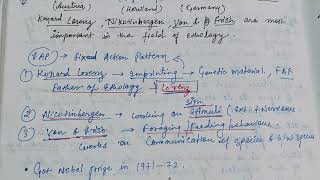 (Austria) (Holland) (Germany)
Konard Lorenz, Nikotinbergen Von & Frish are most
important in the field of Ethology.
FAP → Fixed Action Pattern
① Konard Lorenz → Imprinting → Genetic material, FAP
Father of Ethology Lorenz
② Nicotinbergen → working on sign Stimuli
③ Von & Frish → Foraging / Feeding behaviour.
works on Communication of species
• Got Nobel prize in 1971-72.